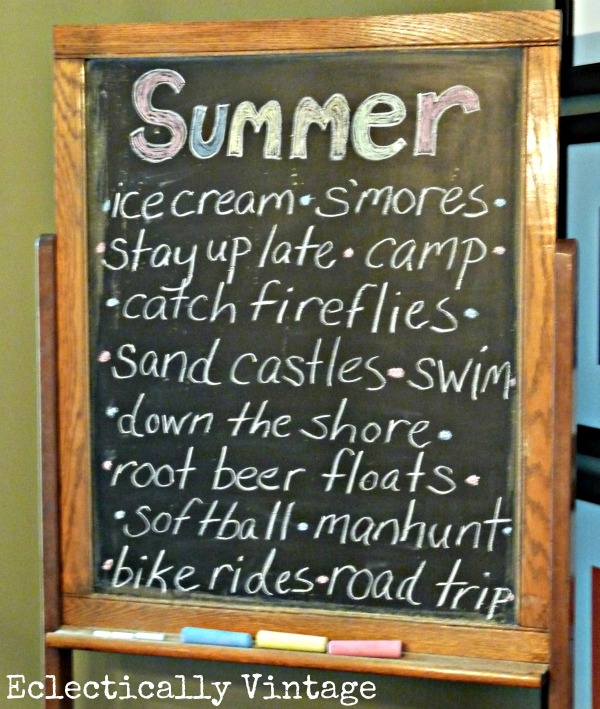 Summer
•ice cream • s'mores •
•stay up late • camp •
•catch fireflies •
•sand castles • swim •
•down the shore •
•root beer floats •
•softball • manhunt •
•bike rides • road trip
Eclectically Vintage